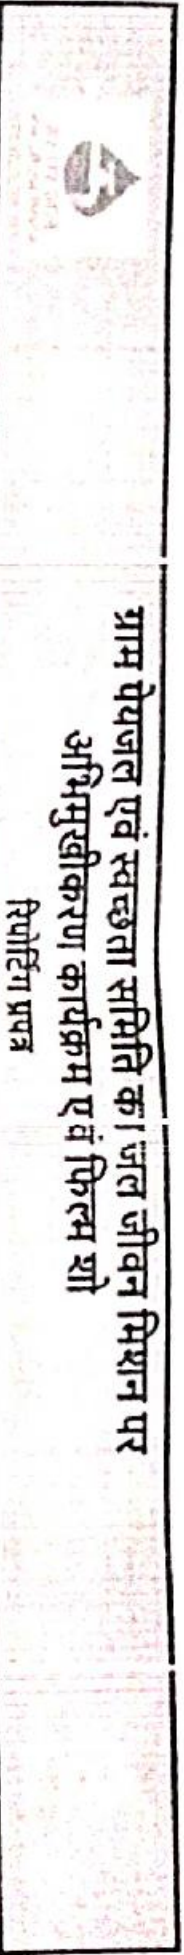 ग्राम पेयजल एवं स्वच्छता समिति का जल जीवन मिशन पर
अभिमुखीकरण कार्यक्रम एवं फिल्म शो
रिपोर्टिंग प्रपत्र